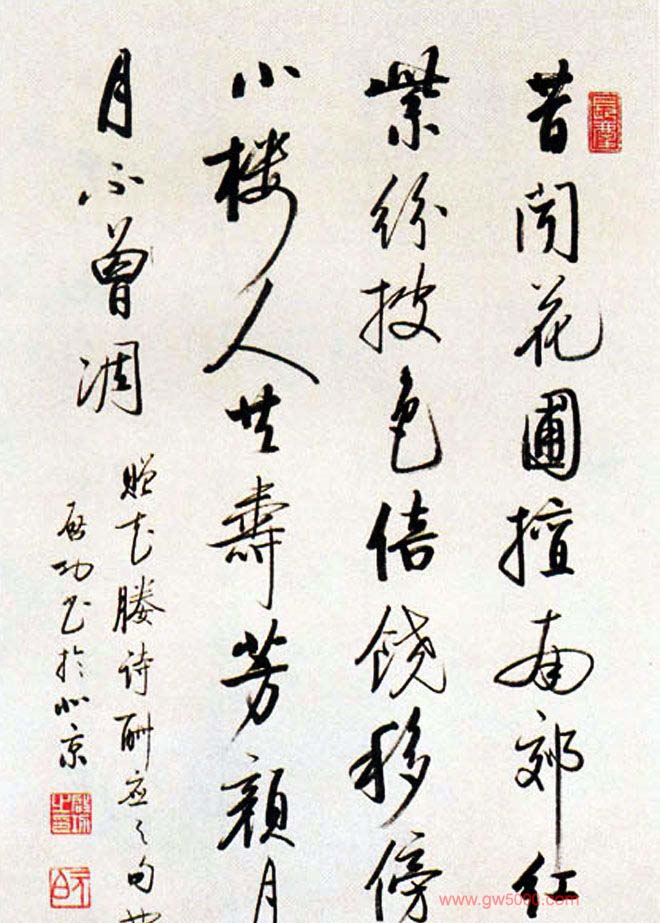 昔闻花圃擅南郊红
紫纷披色倍饶移傍
小楼人共壽芳颜月
月不曾凋
赠花媵诗酬应之句
启功书於北京
www.gw5000.com